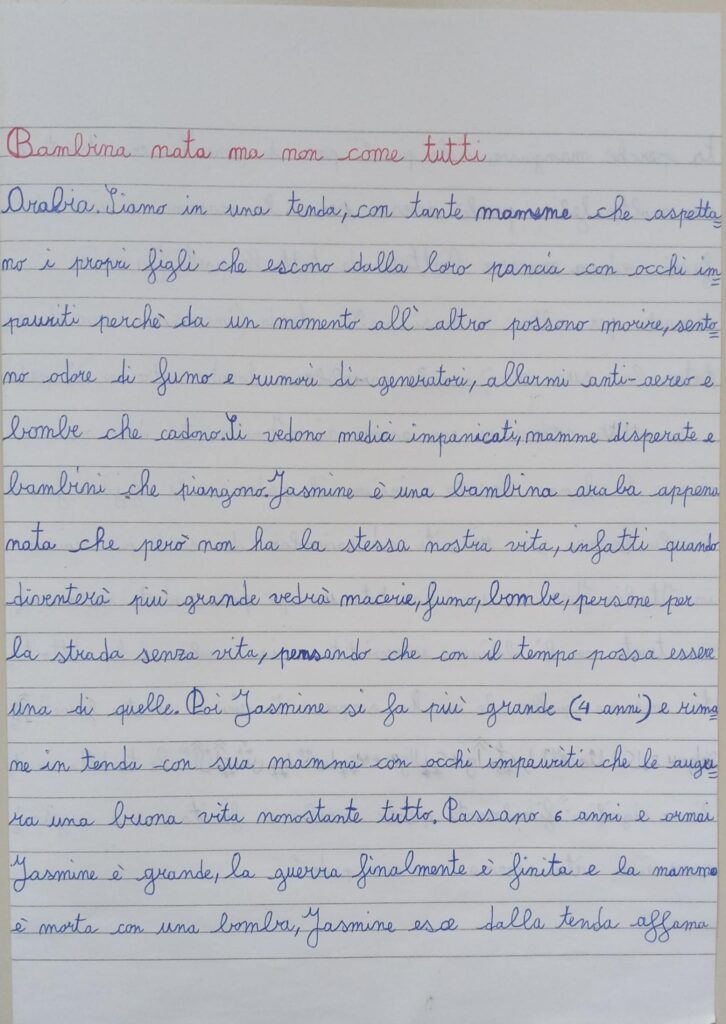 Bambina nata ma non come tutti
Arabia. Siamo in una tenda, con tante mamme che aspetta=
no i propri figli che escono dalla loro pancia con occhi im=
pauriti perchè da un momento all'altro possono morire, sento=
no odore di fumo e rumori di generatori, allarmi anti-aereo e
bombe che cadono. Si vedono medici impanicati, mamme disperate e
bambini che piangono. Jasmine è una bambina araba appena
nata che però non ha la stessa nostra vita, infatti quando
diventerà più grande vedrà macerie, fumo, bombe, persone per
la strada senza vita, pensando che con il tempo possa essere
una di quelle. Poi Jasmine si fa più grande (4 anni) e rima=
ne in tenda con sua mamma con occhi impauriti che le augu=
ra una buona vita nonostante tutto. Passano 6 anni e ormai
Jasmine è grande, la guerra finalmente è finita e la mamma
è morta con una bomba, Jasmine esce dalla tenda affama